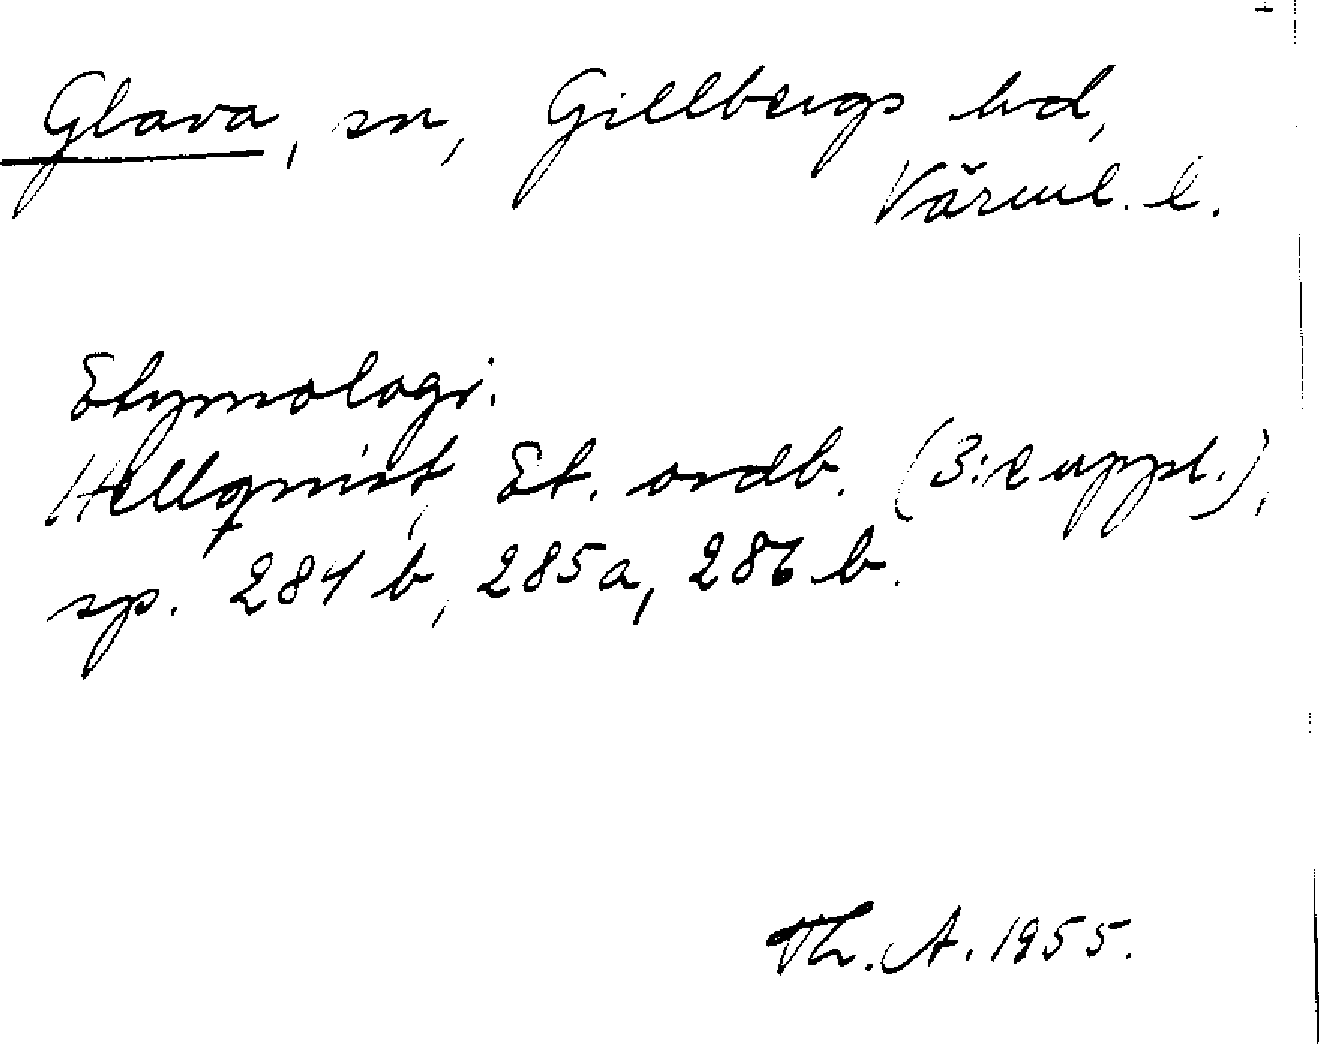 Glava, sn, Gillbergs hd,
Värml. l.
Etymologi.
Hellquist, Et. ordb. (3:e uppl.),
sp. 284 b, 285a, 286 b.
Th. A. 1955.